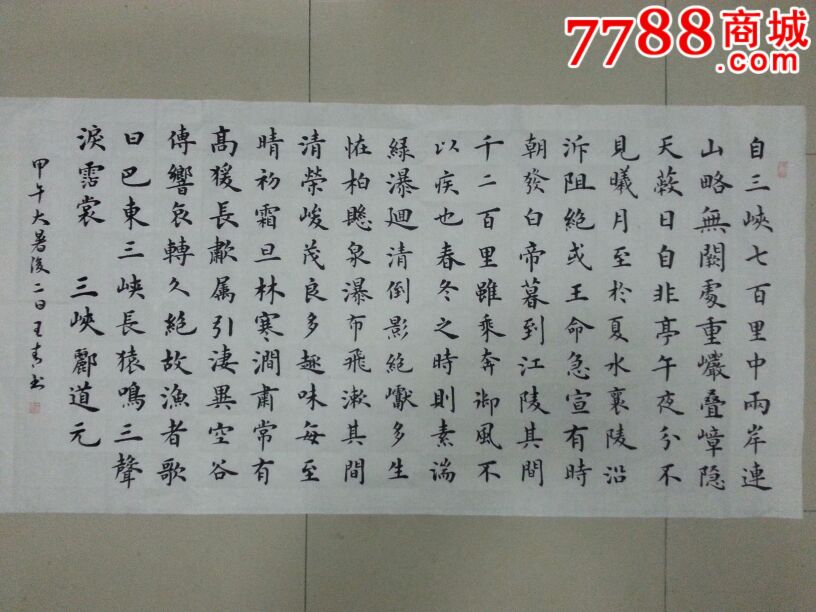 7788商城
.com
自三峽七百里中兩岸連
山略無闕處重巘疊嶂隐
天蔽日自非亭午夜分不
見曦月至於夏水襄陵沿
泝阻絕或王命急宣有時
朝發白帝暮到江陵其間
千二百里雖乘奔御風不
以疾也春冬之時則素湍
綠瀑廻清倒影絕巘多生
恠柏懸泉瀑布飛漱其間
清榮峻茂良多趣味每至
晴初霜旦林寒澗肅常有
高猨長歗属引淒異空谷
傳響哀轉久絕故漁者歌
曰巴東三峽長猿鳴三聲
淚霑裳 三峽酈道元
甲午大暑後二日王青书